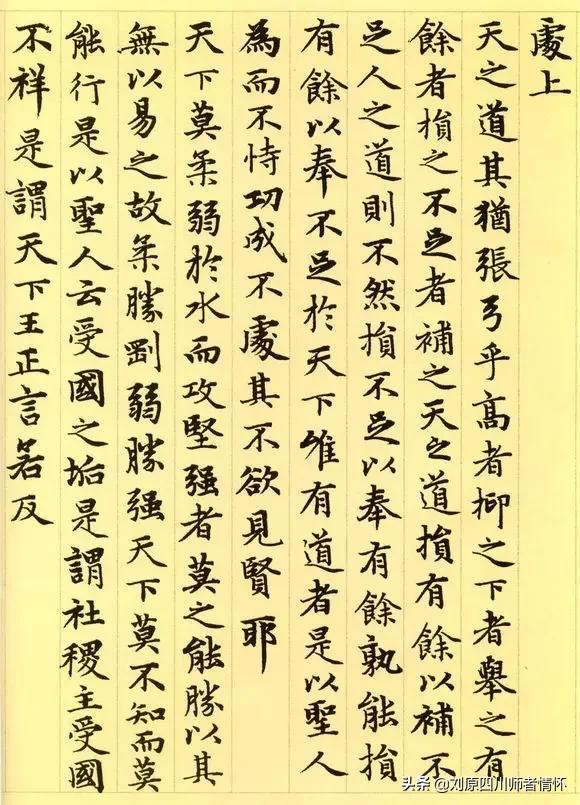 處上
天之道其猶張弓乎高者抑之下者舉之有
餘者損之不足者補之天之道損有餘以補不
足人之道則不然損不足以奉有餘孰能損
有餘以奉不足於天下唯有道者是以聖人
為而不恃功成不處其不欲見賢耶
天下莫柔弱於水而攻堅强者莫之能勝以其
無以易之故柔勝剛弱勝强天下莫不知而莫
能行是以聖人云受國之垢是謂社稷主受國
不祥是謂天下王正言若反
头条 @刘原四川师者情怀